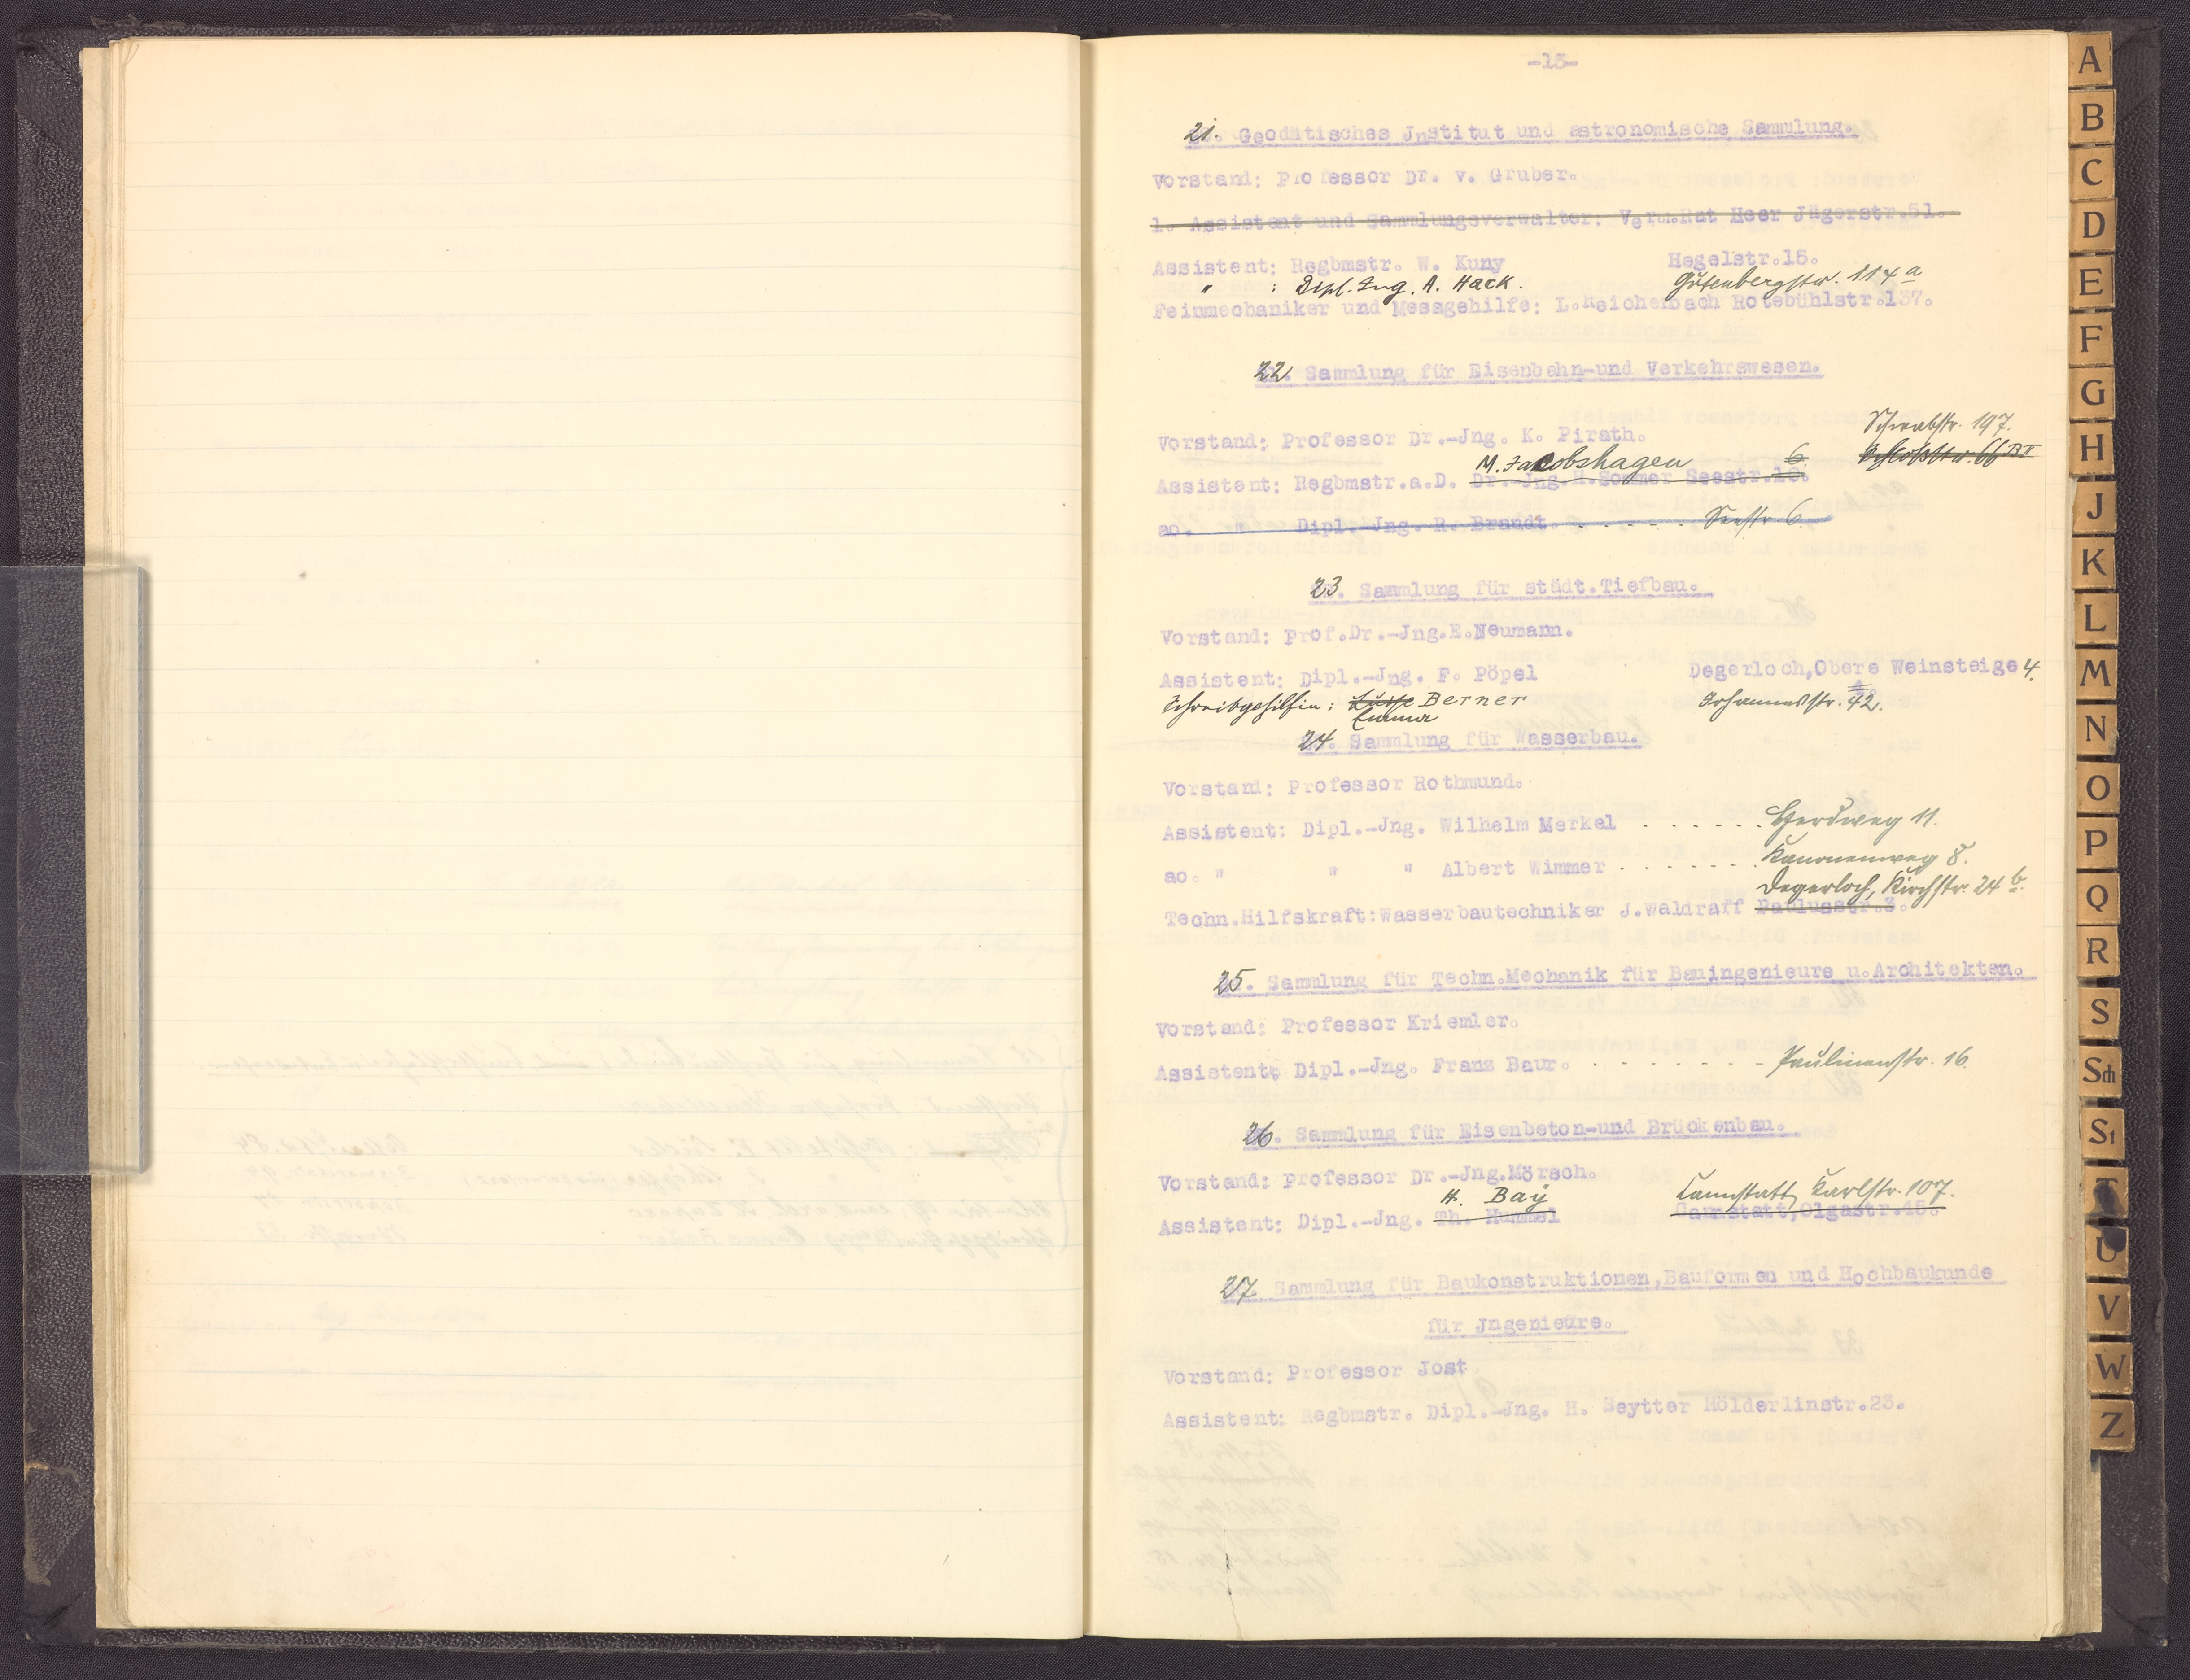 -13-
21. Geodätisches Jnstitut und astronomische Sammlung.
Vorstand: Professor Dr. v. Gruber.
1. Assistent und Sammlungsverwalter: Verm.Rat Heer Jägerstr.51.
Assistent: Regbmstr. W. Kuny Hegelstr.15.
" : Dipl. Ing. A. Hack. Gutenbergstr. 114 a
Feinmechaniker und Messgehilfe: L.Reicherbach Rotebühlstr.137.
22. Sammlung für Eisenbahn-und Verkehrswesen.
Schwabstr. 197.
Vorstand: Professor Dr.-Jng. K. Pirath.
M. Jacobshagen 6. Schloßstr. 66 B II
Assistent: Regbmstr.a.D. Dr.-Jng.H.Sommer Seestr.18.
ao. " Dipl.-Jng. R. Brandt. - - - - - - Seestr. 6.
23. Sammlung für städt.Tiefbau.
Vorstand: Prof.Dr.-Jng.E.Neumann.
Assistent: Dipl.-Jng. F. Pöpel Degerloch,Obere Weinsteige 4.
Schreibgehilfin: Luise Berner Johannesstr. 42.
Emma
24. Sammlung für Wasserbau.
Vorstand: Professor Rothmund.
Assistent: Dipl.-Jng. Wilhelm Merkel - - - - - - Herdweg 11.
ao. " " " Albert Wimmer - - - - - - - Kanonenweg 8.
Degerloch, Kirchstr. 24 b.
Techn.Hilfskraft:Wasserbautechniker J.Waldraff Paulusstr.3.
25. Sammlung für Techn.Mechanik für Bauingenieure u.Architekten.
Vorstand: Professor Kriemler.
Assistent: Dipl.-Jng. Franz Baur. - - - - - - - - Paulinenstr. 16.
26. Sammlung für Eisenbeton-und Brückenbau.
Vorstand: Professor Dr.-Jng.Mörsch.
H. Bay Cannstatt, Karlstr. 107.
Assistent: Dipl.-Jng. Th. Hummel Cannstatt,Olgastr.45.
27. Sammlung für Baukonstruktionen,Bauformen und Hochbaukunde
für Jngenieure.
Vorstand: Professor Jost.
Assistent: Regbmstr. Dipl.-Jng. H. Seytter Hölderlinstr.23.
A
B
C
D
E
F
G
H
J
K
L
M
N
O
P
Q
R
S
Sch
St
T
U
V
W
Z